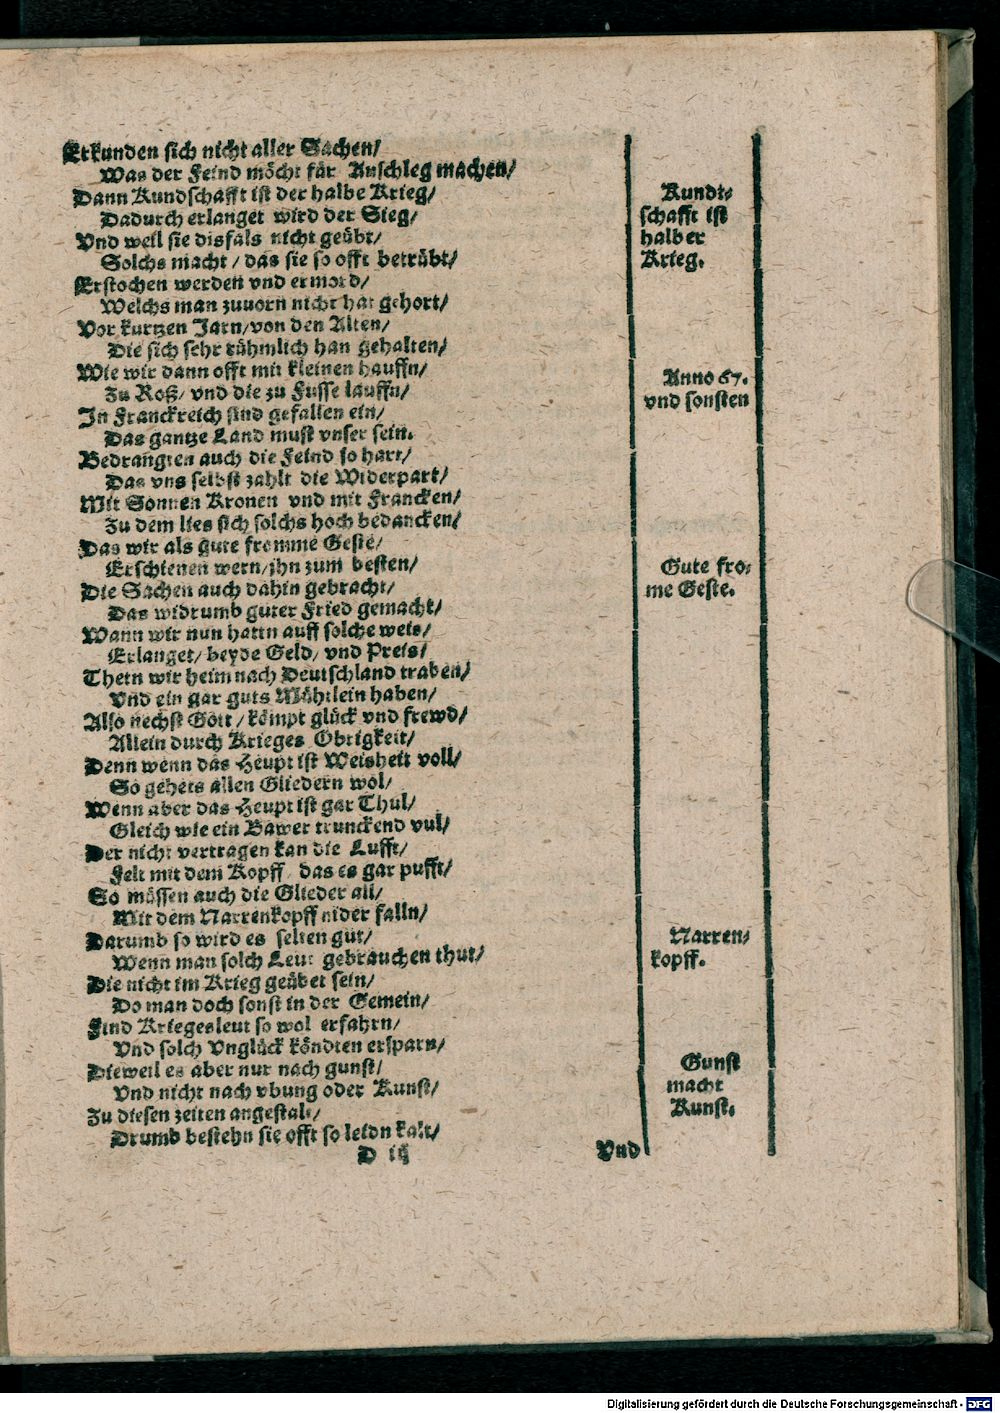 Erkunden sich nicht aller Sachen/
Was der Feind möcht für Anschleg machen/
Dann Kundschafft ist der halbe Krieg/
Dadurch erlanget wird der Sieg/
Vnd weil sie disfals nicht geübt/
Solchs macht / das sie so offt betrübt/
Erstochen werden vnd ermord/
Welchs man zuuorn nicht hat gehort/
Vor kurtzen Jarn/von den Alten/
Die sich sehr rühmlich han gehalten/
Wie wir dann offt mit kleinen hauffn/
Zu Roß/ vnd die zu Fusse lauffn/
In Franckreich sind gefallen ein/
Das gantze Land must vnser sein.
Bedrangten auch die Feind so hart/
Das vns selbst zahlt die Widerpart/
Mit Sonnen Kronen vnd mit Francken/
Zu dem lies sich solchs hoch bedancken/
Das wir als gute fromme Geste/
Erschienen wern/jhn zum besten/
Die Sachen auch dahin gebracht/
Das widrumb guter Fried gemacht/
Wann wir nun hattn auff solche weis/
Erlanget/ beyde Geld/ vnd Preis/
Thetn wir heim nach Deutschland traben/
Vnd ein gar guts Mühtlein haben/
Also nechst Gott / kömpt glück vnd frewd/
Allein durch Krieges Obrigkeit/
Denn wenn das Heupt ist Weisheit voll/
So gehets allen Gliedern wol/
Wenn aber das Heupt ist gar Thul/
Gleich wie ein Bawer trunckend vul/
Der nicht vertragen kan die Lufft/
Felt mit dem Kopff das es gar pufft/
So müssen auch die Glieder all/
Mit dem Narrenkopff nider falln/
Darumb so wird es selten gut/
Wenn man solch Leut gebrauchen thut/
Die nicht im Krieg geübet sein/
Do man doch sonst in der Gemein/
Find Kriegesleut so wol erfahrn/
Vnd solch Vnglück köndten ersparn/
Dieweil es aber nur nach gunst/
Vnd nicht nach vbung oder Kunst/
Zu diesen zeiten angestalt/
Drumb bestehn sie offt so leidn kalt/
D iij
Vnd
Kundt-
schafft ist
halber
Krieg.
Anno 67.
vnd sonsten
Gute fro-
me Geste.
Narren-
kopff.
Gunst
macht
Kunst.
Digitalisierung gefördert durch die Deutsche Forschungsgemeinschaft - DFG